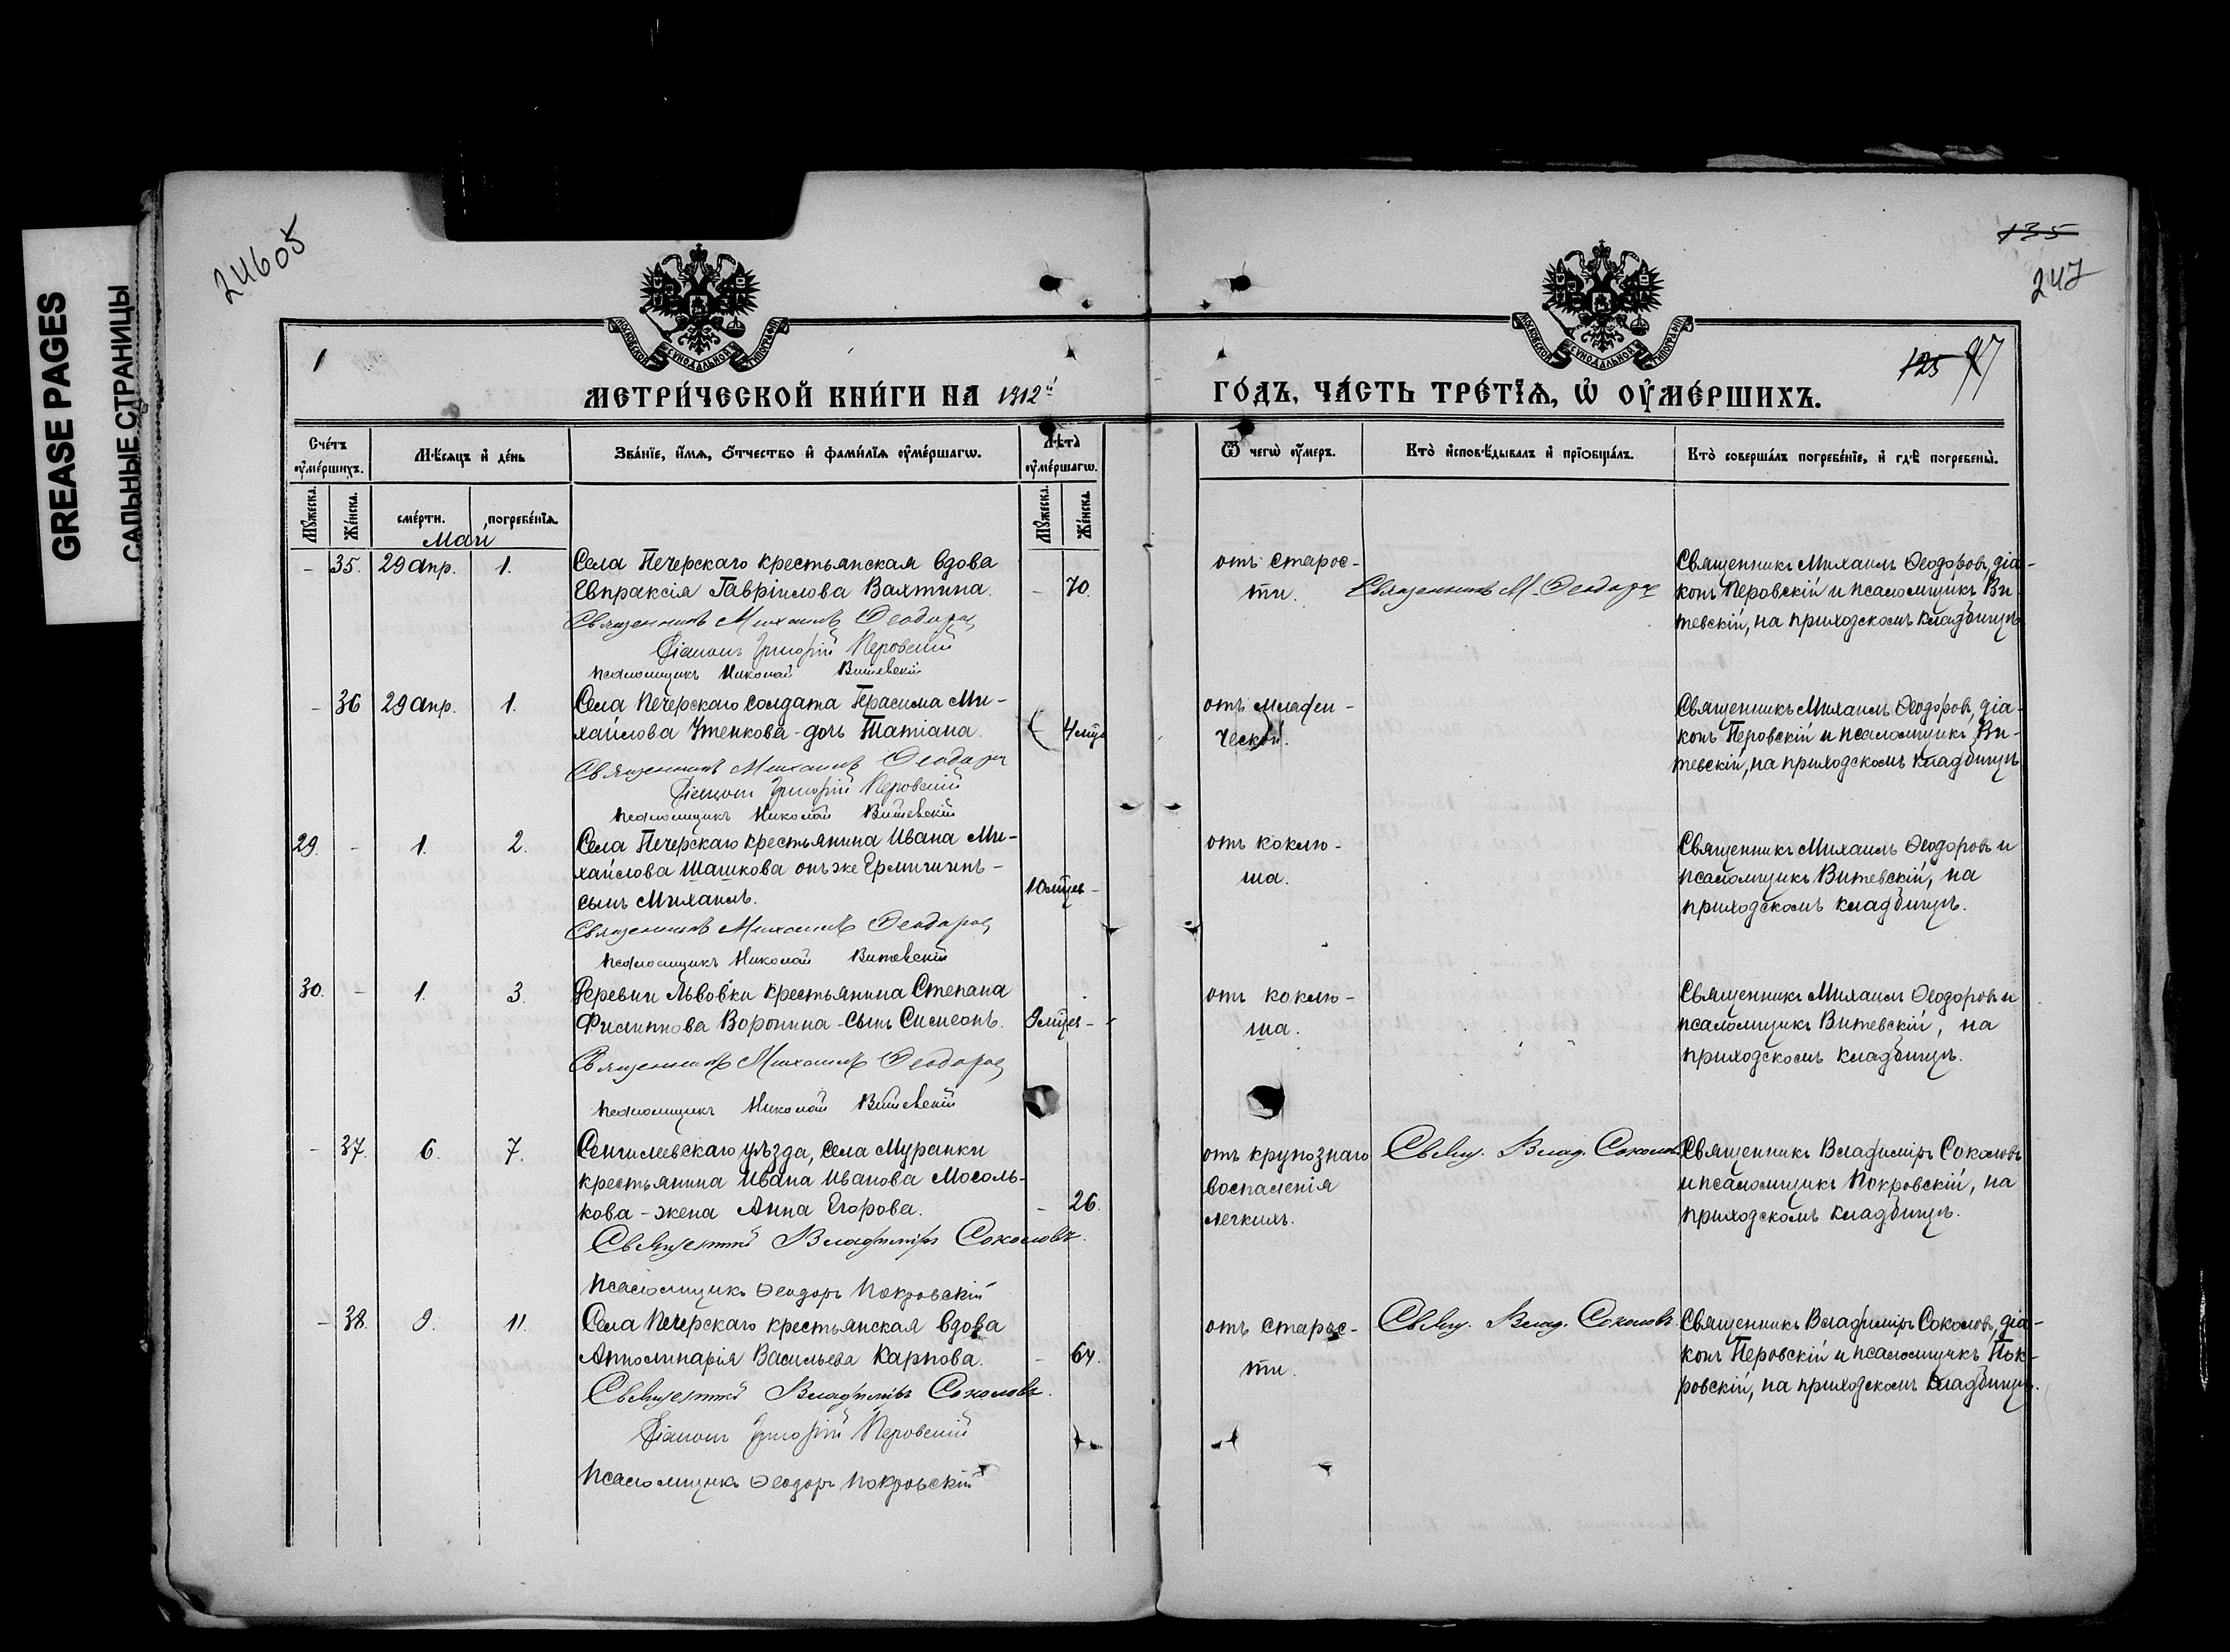 GREASE PAGES
САЛЬНЫЕ СТРАНИЦЫ
24605
135
247
1
125
97
МОСКОВСКОЙ СѴНОДАЛЬНОЙ ТИПОГРАФІИ
МОСКОВСКОЙ СѴНОДАЛЬНОЙ ТИПОГРАФІИ
МЕТРИ́ЧЕСКОЙ КНИ́ГИ НА 1912й
ГО́ДЪ, ЧА́СТЬ ТРЕ́ТІѦ, Ѡ҆ ОУ҆МЕ́РШИХЪ.
Сче́тъ оу҆ме́ршихъ.
Мѣ́сяцъ и҆ де́нь
Зва́нїе, и҆́мѧ, ѻ҆́тчество и҆ фами́лїѧ оу҆ме́ршагѡ.
Лѣ́та оу҆ме́ршагѡ.
Ѿ чегѡ̀ оу҆́меръ.
Кто̀ и҆сповѣ́дывалъ и҆ прїѡбща́лъ.
Кто̀ соверша́лъ погребе́нїе, и҆ гдѣ̀ погребены̀.
Мꙋ́жеска.
Же́нска.
сме́рти.
погребе́нїѧ.
Мꙋ́жеска.
Же́нска.
Май
– 35. 29 апр. 1. Села Печерскаго крестьянская вдова
Евпраксія Гавріилова Вахтина. – 70.
Священникъ Михаилъ Ѳеодоровъ
Діаконъ Григорій Перовскій
Псаломщикъ Николай Витевскій
отъ старос-
ти.
Священникъ М. Ѳеодоровъ
Священникъ Михаилъ Ѳеодоровъ, діа-
конъ Перовскій и псаломщикъ Ви-
тевскій, на приходскомъ кладбищѣ.
– 36 29 апр. 1. Села Печерскаго солдата Герасима Ми-
хайлова Утенкова - дочь Татіана. – 4 мѣс
Священникъ Михаилъ Ѳеодоровъ
Діаконъ Григорій Перовскій
Псаломщикъ Николай Витевскій
отъ младен-
ческой.
Священникъ Михаилъ Ѳеодоровъ, діа-
конъ Перовскій и псаломщикъ Ви-
тевскій, на приходскомъ кладбищѣ
29. – 1. 2. Села Печерскаго крестьянина Ивана Ми-
хайлова Шашкова онъ же Ермичичъ -
сынъ Михаилъ. 10 мѣсяц –
Священникъ Михаилъ Ѳеодоровъ
Псаломщикъ Николай Витевскій
отъ коклю-
ша.
Священникъ Михаилъ Ѳеодоровъ и
псаломщикъ Витевскій, на
приходскомъ кладбищѣ.
30. – 1. 3. Деревни Львовки крестьянина Степана
Филиппова Воронина - сынъ Симеонъ. 9 мѣсяц –
Священникъ Михаилъ Ѳеодоровъ
Псаломщикъ Николай Витевскій
отъ коклю-
ша.
Священникъ Михаилъ Ѳеодоровъ и
псаломщикъ Витевскій, на
приходскомъ кладбищѣ.
– 37. 6. 7. Сенгилеевскаго уѣзда, села Муранки
крестьянина Ивана Иванова Мосоль-
кова - жена Анна Егорова. – 26.
Священникъ Владиміръ Соколовъ.
Псаломщикъ Ѳеодоръ Покровскій
отъ крупознаго
воспаленія
легкихъ.
Свящ. Влад. Соколовъ
Священникъ Владиміръ Соколовъ
и псаломщикъ Покровскій, на
приходскомъ кладбищѣ.
– 38. 9. 11. Села Печерскаго крестьянская вдова
Апполинарія Васильева Карпова. – 64.
Священникъ Владиміръ Соколовъ.
Діаконъ Григорій Перовскій
Псаломщикъ Ѳеодоръ Покровскій
отъ старос-
ти.
Свящ. Влад. Соколовъ.
Священникъ Владиміръ Соколовъ, діа-
конъ Перовскій и псаломщикъ Пок-
ровскій, на приходскомъ кладбищѣ.